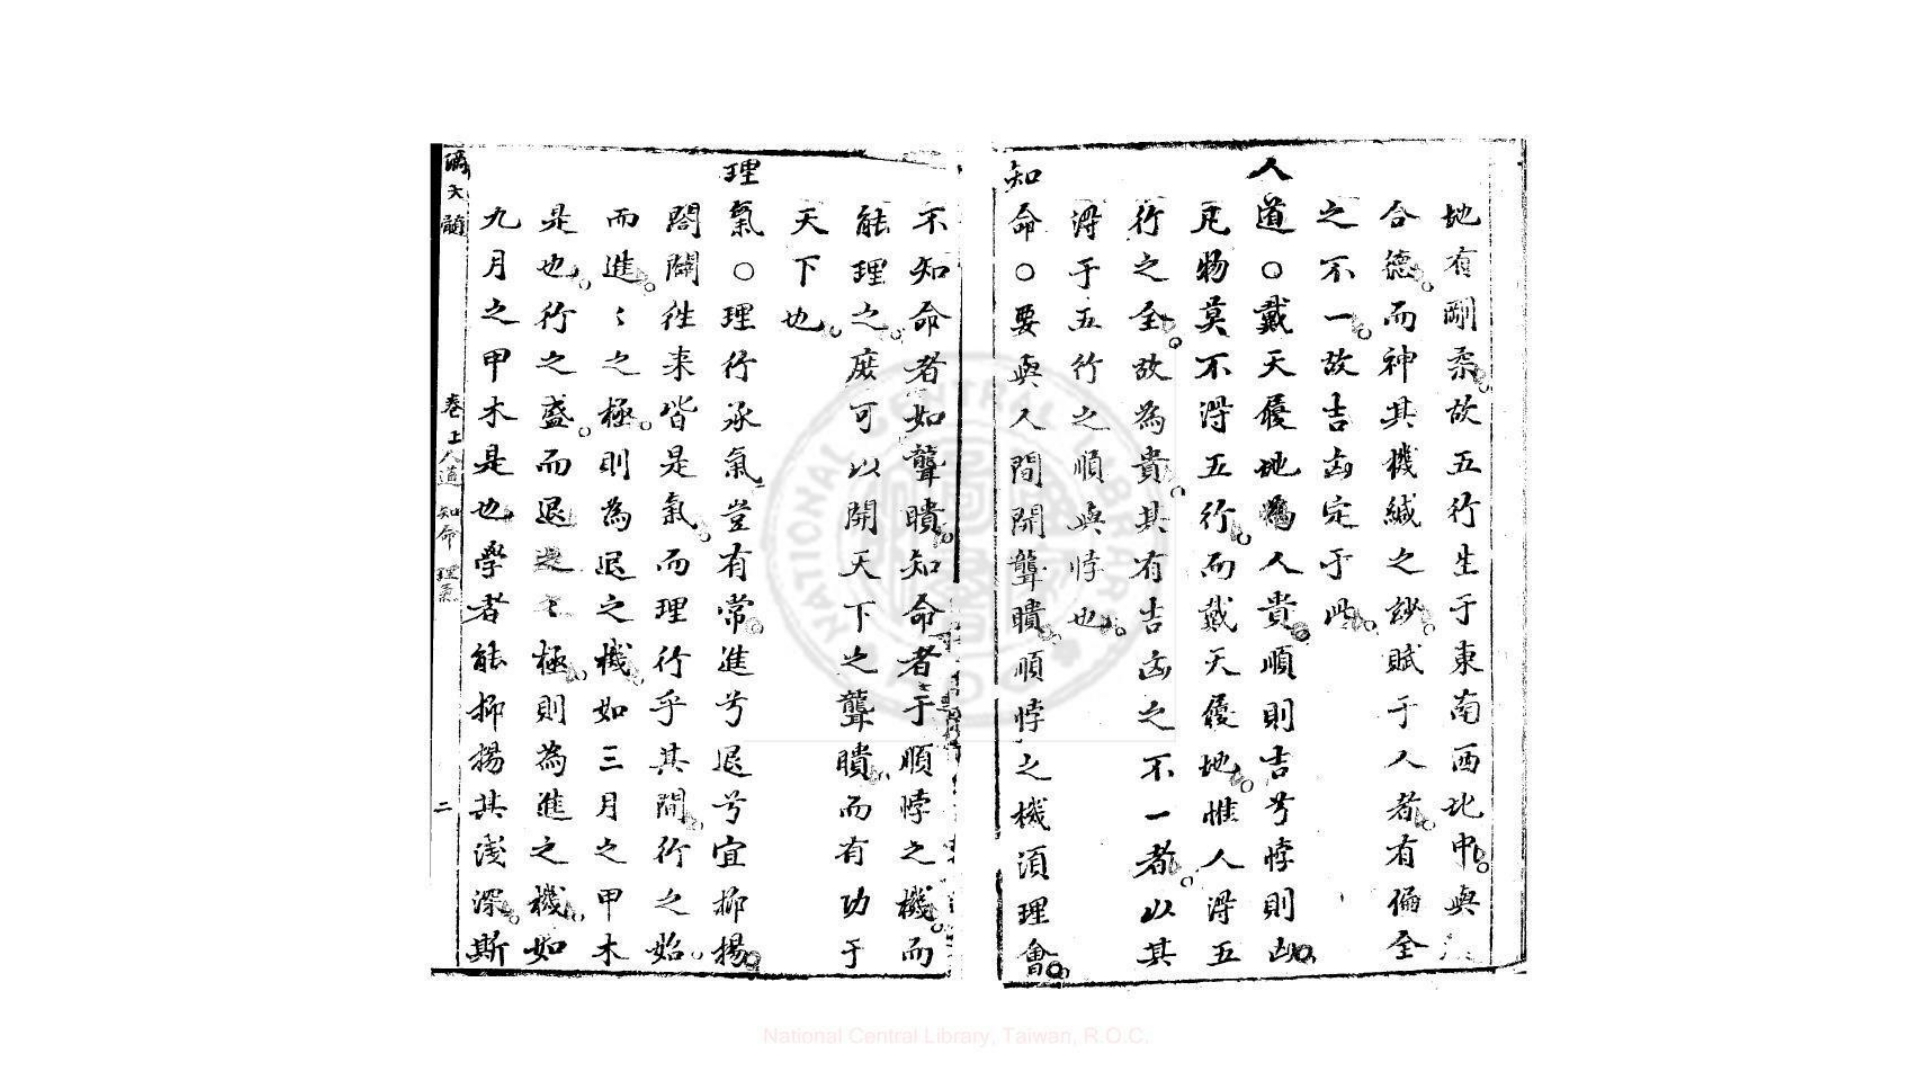 地有剛柔故五行生于東南西北中與
合德而神其機緘之玅賦于人者有偏全
之不一故吉凶定于此
人道○戴天履地為人貴順則吉兮悖則凶
凡物莫不淂五行而戴天履地惟人淂五
行之全故為貴其有吉凶之不一者以其
淂于五行之順與悖也
知命○要與人間開聾聵順悖之機湏理會
不知命者如聾聵知命者于順悖之機而
能理之庻可以開天下之聾聵而有功于
天下也
理氣○理行承氣豈有常進兮退兮宜抑揚
閤闢徃来皆是氣而理行乎其間行之始
而進〻之極則為退之機如三月之甲木
是也行之盛而退退〻極則為進之機如
九月之甲木是也學者能抑揚其淺深斯
滴天髓 卷上 人道 知命 理氣 二
NATIONAL CENTRAL LIBRARY
R.O.C.
National Central Library, Taiwan, R.O.C.